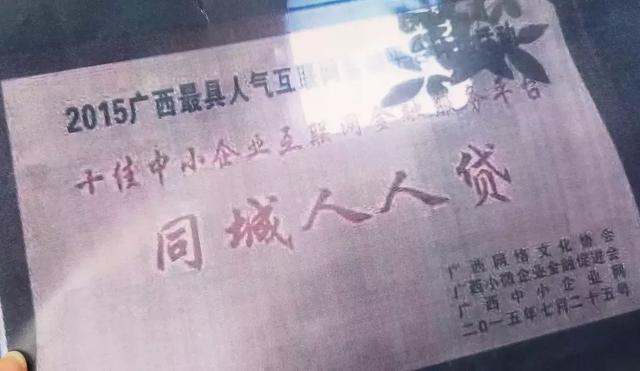 2015广西最具人气互联网
十佳中小企业互联网金融服务平台
同城人人贷
广西网络文化协会
广西小微企业金融促进会
广西中小企业网
二〇一五年七月二十五号